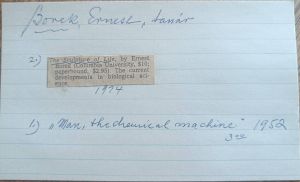 Borek, Ernest, tanár
2.)
The Sculpture of Life, by Ernest
Borek (Columbia University, $10;
paperbound, $2.95). The current
developments in biological sci-
ence.
1974
1.) „Man, the chemical machine" 1952
3.00